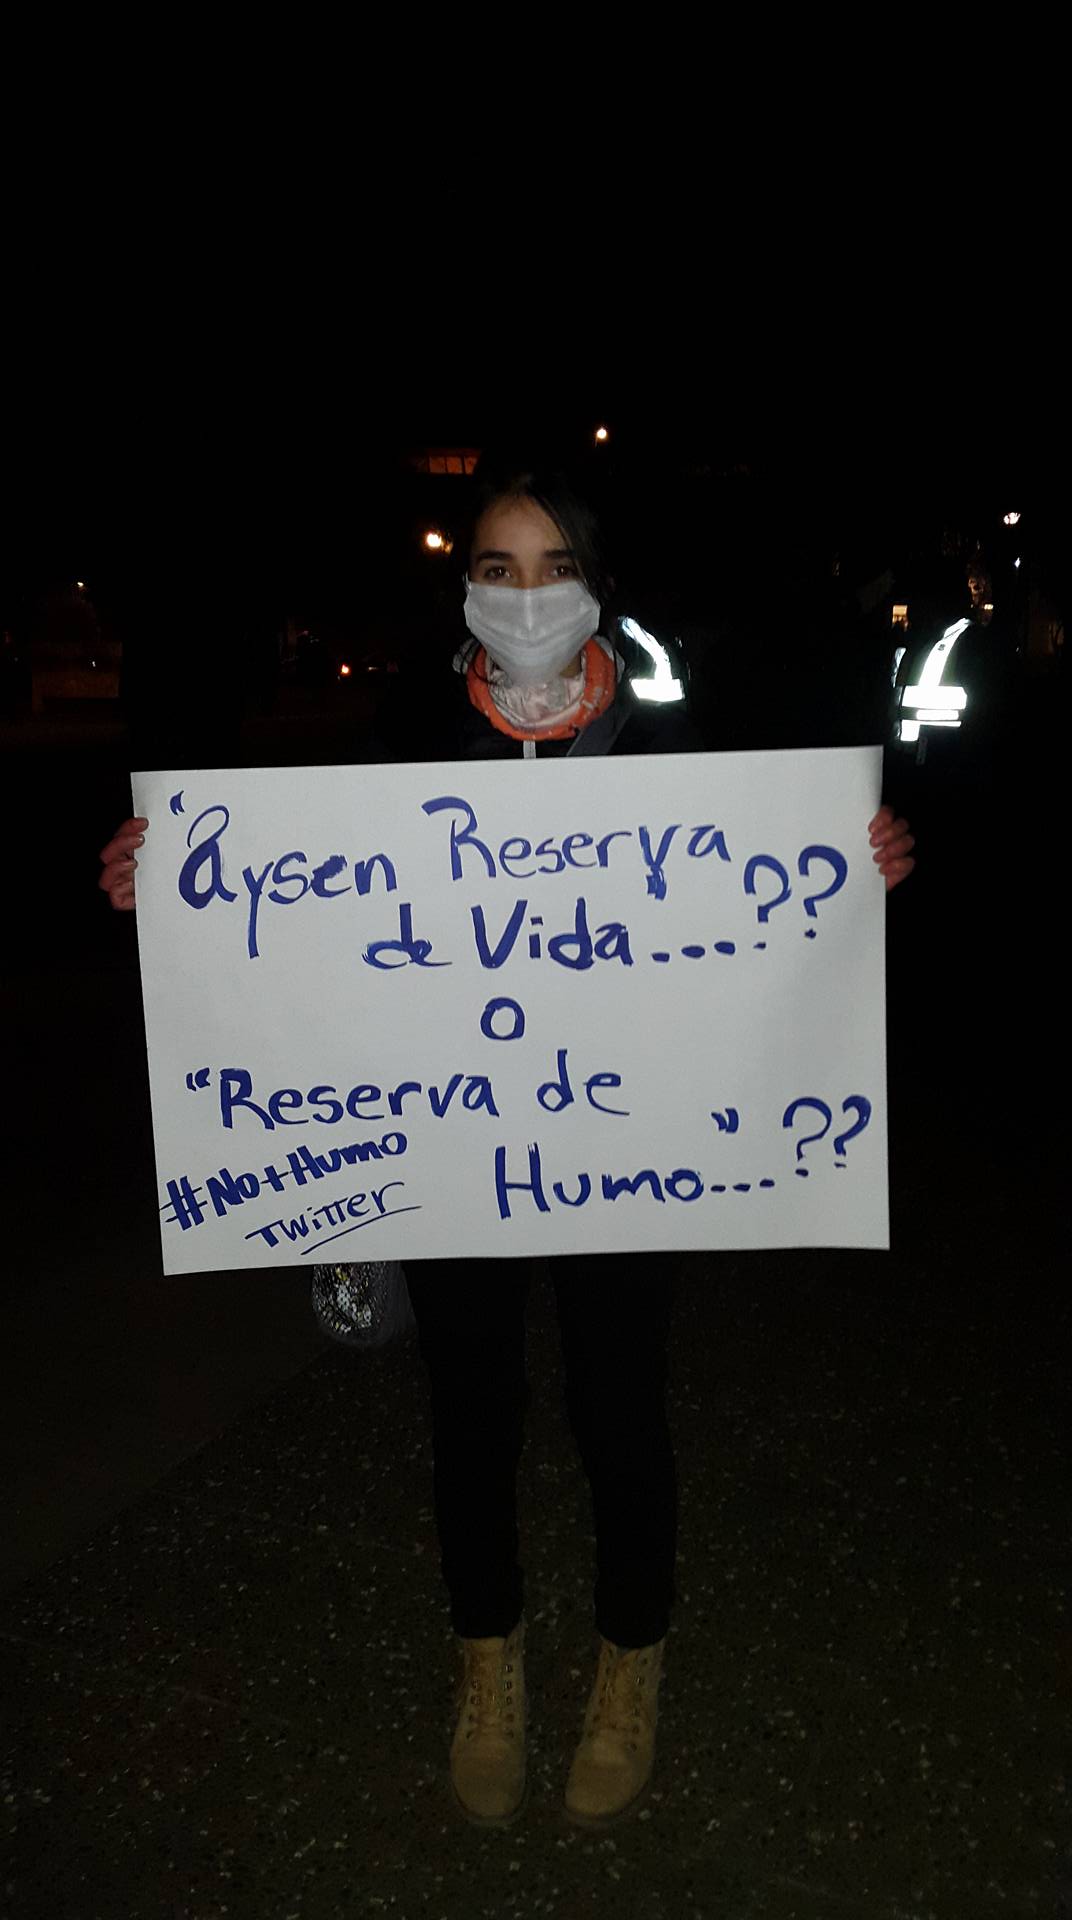 "Aysen Reserva
de Vida....??
o
"Reserva de
Humo...." ??
#No+Humo
TWITTER